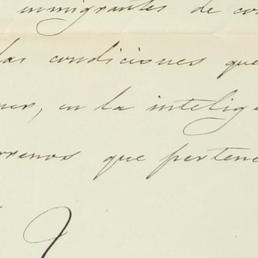 inmigrantes de co
las condiciones que
en la intelige
rrenos que pertene